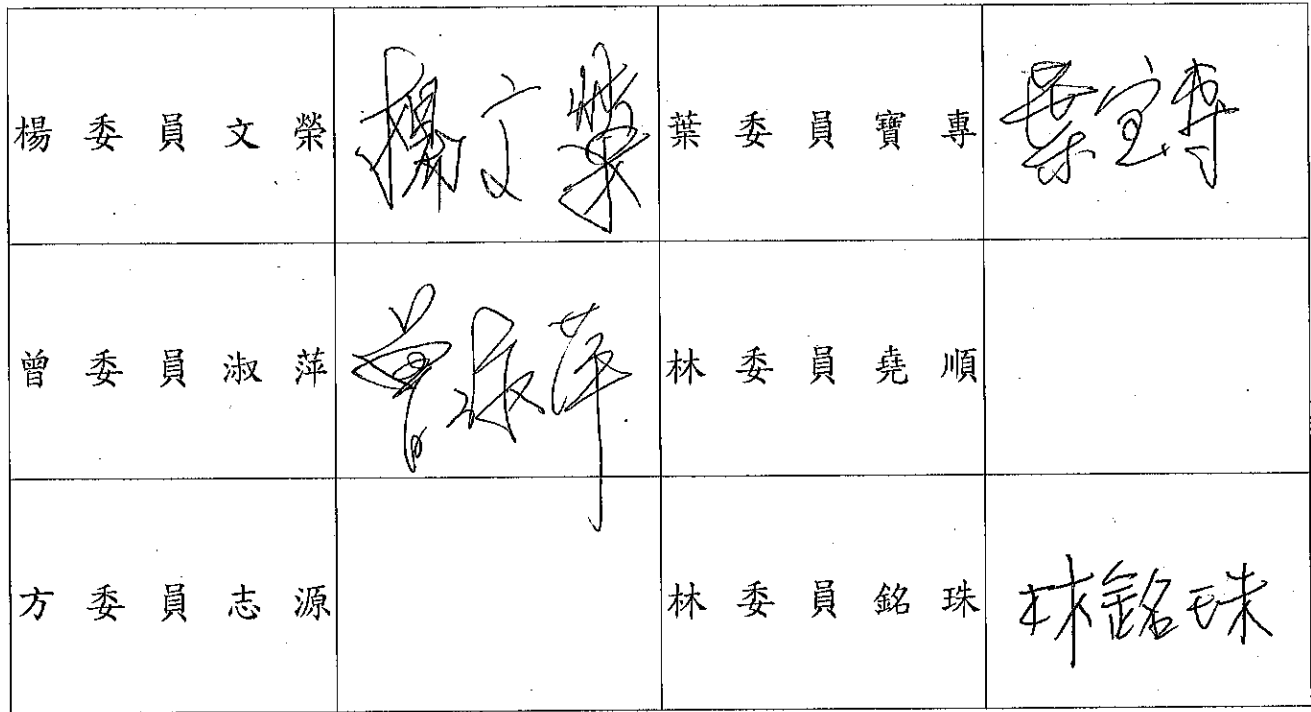 楊委員文榮 楊文榮 葉委員寶專 葉宝專
曾委員淑萍 曾淑萍 林委員堯順
方委員志源 林委員銘珠 林銘珠